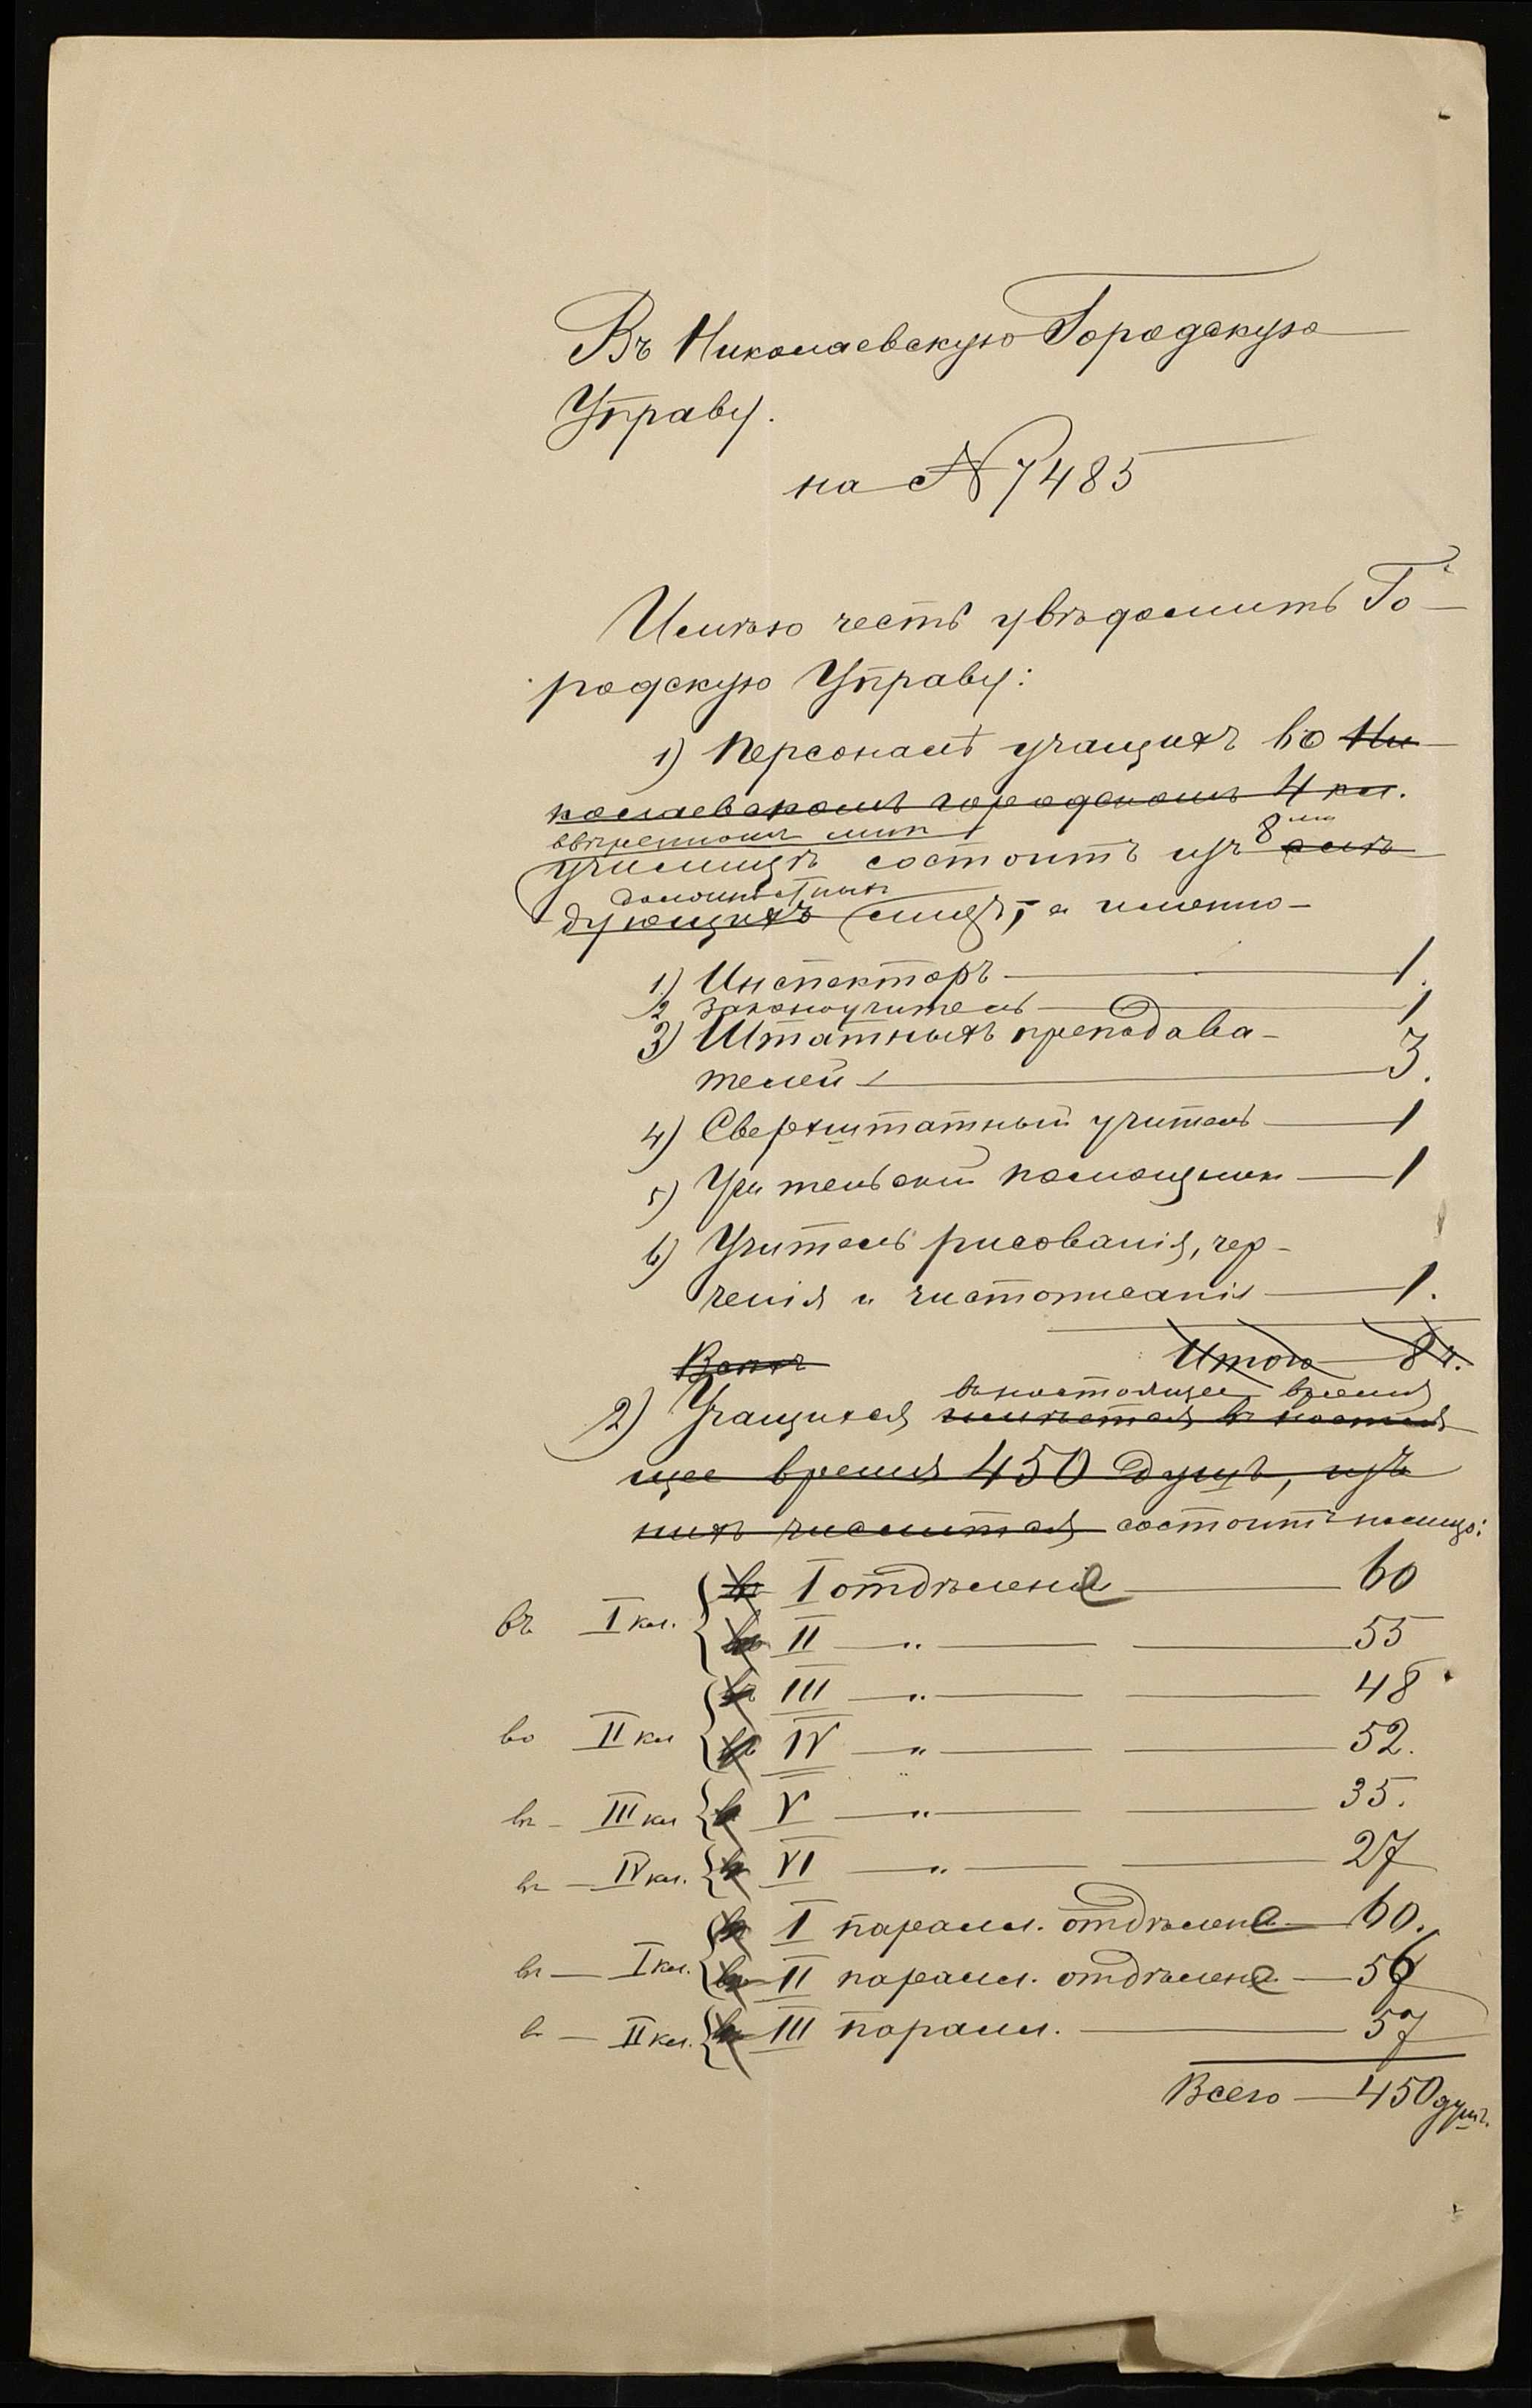 Въ Николаевскую Городскую
Управу.
на № 7485
Имѣю честь увѣдомить Го-
родскую Управу:
1) Персоналъ учащихъ во Ни-
колаевскомъ городскомъ 4 кл.
ввѣренномъ мнѣ
училищѣ состоитъ изъ 8 ми
дующихъ лицъ, а именно-
1) Инспекторъ — 1.
2 Законоучитель — 1
3) Штатныхъ преподава-
телей — 3.
4) Сверхштатный учитель — 1
5) Учительскій помощникъ — 1
6) Учитель рисованія, чер-
ченія и чистописанія — 1.
Итого — 8 ч.
въ настоящее время
2) Учащихся имѣется въ настоя
щее время 450 душъ, изъ
нихъ числится состоитъ на лицо:
въ I кл. { въ I отдѣленіе — 60
въ II — „ — 55
въ III — „ — 48
во II кл { въ IV — „ — 52.
въ — III кл { въ V — „ — 35.
въ — IV кл. { въ VI — „ — 27
въ I паралл. отдѣлене — 60.
въ — I кл. { въ II паралл. отдѣлене — 56
в — II кл. { въ III паралл. — 57
Всего — 450 душъ.